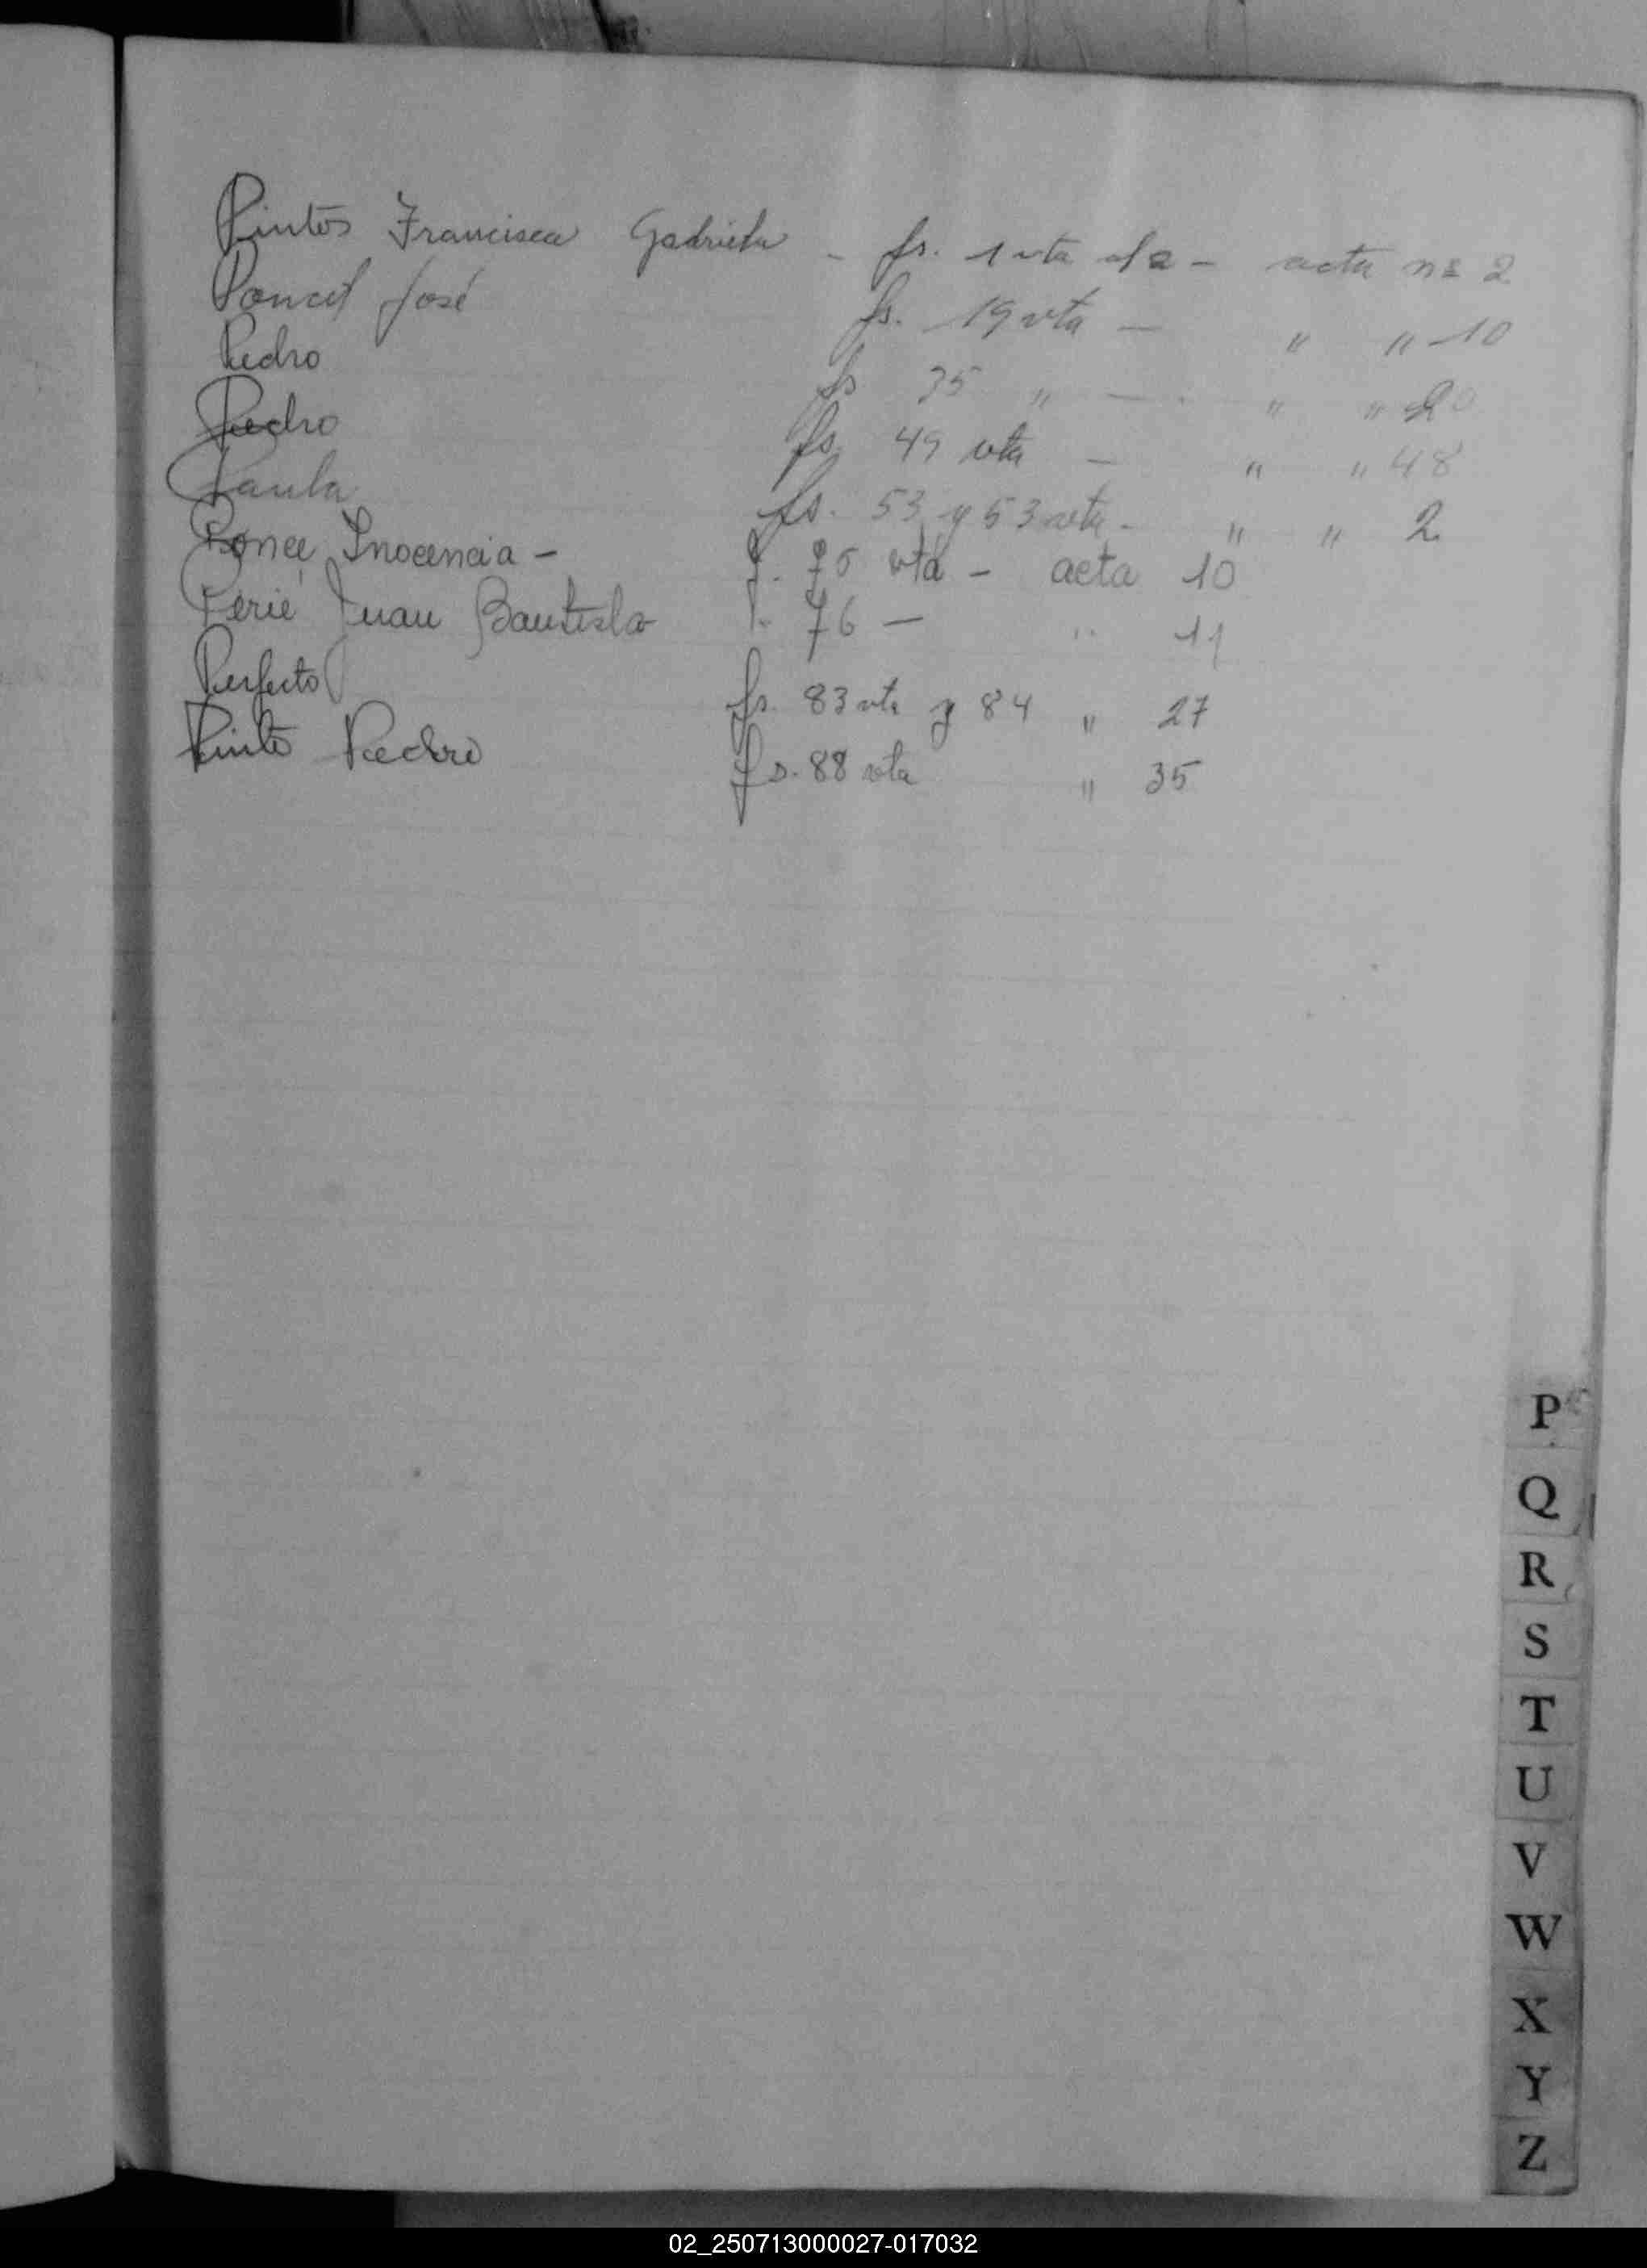 Pintos Francisca Gabriela - fs. 1 vta al 2 - acta nº 2
Poncet José fs. 19 vta - " " 10
Pedro fs 35 " - " " 20
Pedro fs. 49 vta - " " 48
Paula fs. 53 y 53 vta - " " 2
Ponce, Inocencia - f. 75 vta - acta 10
Perié Juan Bautista f. 76 - " 11
Perfecto fs. 83 vta y 84 " 27
Pinto Pedro fs. 88 vta " 35
P
Q
R
S
T
U
V
W
X
Y
Z
02_250713000027-017032